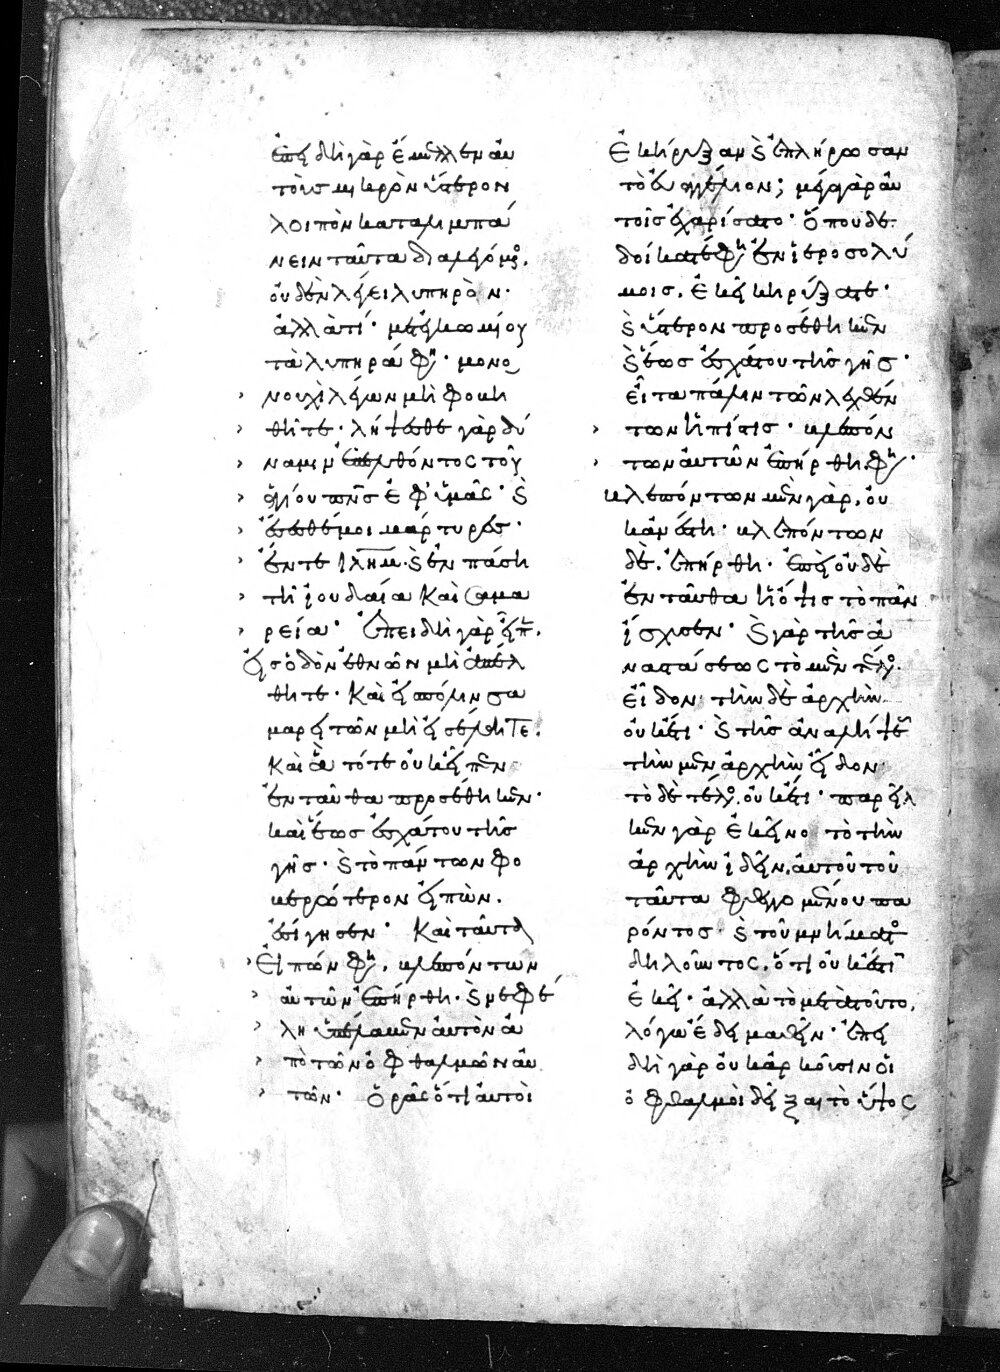 ἐπειδὴ γὰρ ἔμελλεν αὐ
τοῖς μικρὸν ὕστερον
λοιπὸν καταλιμπά
νειν ταῦτα διαλεγόμενος.
οὐδὲν λέγει λυπηρὸν·
ἀλλὰ τί· μεγαλ
τὰ λυπηρά φη· μονο
νουχὶ λέγων μὴ φοβη
θῆτε· λήψεσθε γὰρ δύ
ναμιν ἐπελθόντος τοῦ
ἁγίου πνς ἐφ' ὑμᾶς· καὶ
ἔσεσθέ μοι μάρτυρες·
ἔν τε ιλημ· καὶ ἐν πάσῃ
τῇ ἰουδαία καὶ σαμα
ρεία· ἐπειδὴ γὰρ εἶπεν.
εἰς ὁδὸν ἐθνῶν μὴ ἀπέλ
θητε· καὶ εἰς πόλιν σα
μαρειτῶν μὴ εἰσέλθητε.
καὶ ἃ τότε οὐκ εἶπεν
ἐνταῦθα προσέθηκεν·
καὶ ἕως ἐσχάτου τῆς
γῆς· καὶ τὸ πάντων φο
βερώτερον εἰπὼν.
ἐσίγησεν· καὶ ταῦτα
εἰπών φη, βλεπόντων
αὐτῶν ἐπήρθη· καὶ νεφέ
λη ὑπέλαβεν αὐτὸν ἀ
πὸ τῶν ὀφθαλμῶν αὐ
τῶν· ὁρᾶς ὅτι αὐτοὶ
ἐκήρυξαν καὶ ἐπλήρωσαν
τὸ εὐαγγέλιον; μέγα γὰρ αὐ
τοῖς ἐχαρίσατο· ὅπου δε
δοίκατέ φη ἐν ἱεροσολύ
μοις. ἐκεῖ κηρύξατε·
καὶ ὕστερον προσέθηκεν
καὶ ἕως ἐσχάτου τῆς γῆς·
εἶτα πάλιν τῶν λεχθέν
των ἡ πίστις· βλεπόν
των αὐτῶν ἐπήρθη φη·
βλεπόντων μὲν γὰρ, οὐ
κ ἀνέστη· βλεπόντων
δὲ. ἐπήρθη· ἐπεὶ οὐδὲ
ἐνταῦθα ἡ ὄψις τὸ πᾶν
ἴσχυσεν· καὶ γὰρ τῆς ἀ
ναστάσεως τὸ μὲν τέλος
εἶδον· τὴν δὲ ἀρχὴν
οὐκέτι· καὶ τῆς ἀναλήψεως
τὴν μὲν ἀρχὴν εἶδον·
τὸ δὲ τέλος, οὐκέτι· παρεῖλ
κεν γὰρ ἐκεῖνο τὸ τὴν
ἀρχὴν ἰδεῖν. αὐτοῦ τοῦ
ταῦτα φθεγγομένου πα
ρόντος· καὶ τοῦ μνήματος
δηλοῦντος, ὅτι οὐκ ἔστιν
ἐκεῖ· ἀλλὰ τὸ μετὰ τοῦτο,
λόγω ἔδει μαθεῖν· ἐπει
δὴ γὰρ οὐκ ἀρκοῦσιν οἱ
ὀφθαλμοὶ δεῖξαι τὸ ὕψος